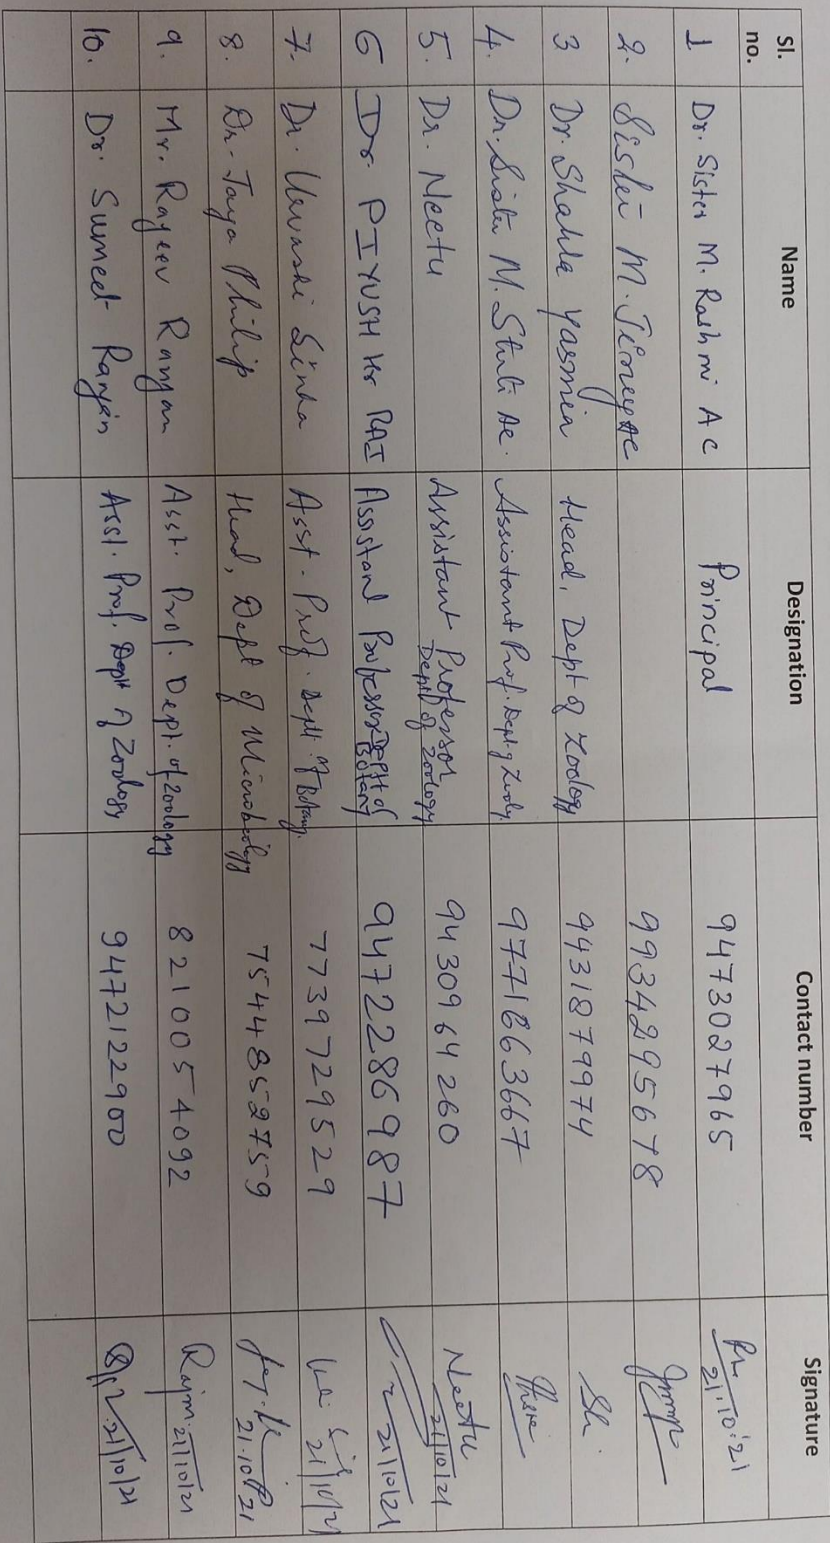 Sl. no. Name Designation Contact number Signature
1 Dr. Sister M. Rashmi A C Principal 9473027965 21.10.'21
2. Sister M. 9934295678
3 Dr. Shahla Yasmin Head, Dept of Zoology 9431879974 Sh.
4. Dr. Sister M. Stuti Ac. Assistant Prof. Dept. of Zoology. 9771863667
5. Dr. Neetu Assistant Professor Dept of Zoology 9430964260 Neetu 21/10/21
6 Dr. PIYUSH Kr RAI Assistant Professor Deptt of Botany 9472286987 21/10/21
7. Dr. Urvashi Sinha Asst. Prof. Deptt. of Botany. 7739729529 21/10/21
8. Dr. Jaya Philip Head, Dept of Microbiology 7544852759 21.10.21
9. Mr. Rajeev Ranjan Asst. Prof. Dept. of Zoology 8210054092 21/10/21
10. Dr. Sumeet Ranjan Asst. Prof. Deptt of Zoology 9472122900 21/10/21